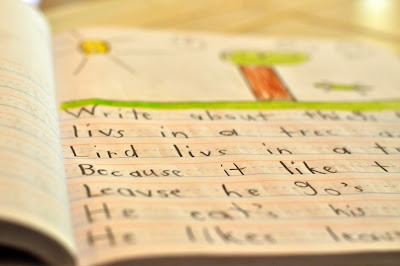 Write about this
livs in a tree a
Lird livs in a t
Because it like t
Leavse he go's
He eat's his
He likes leav